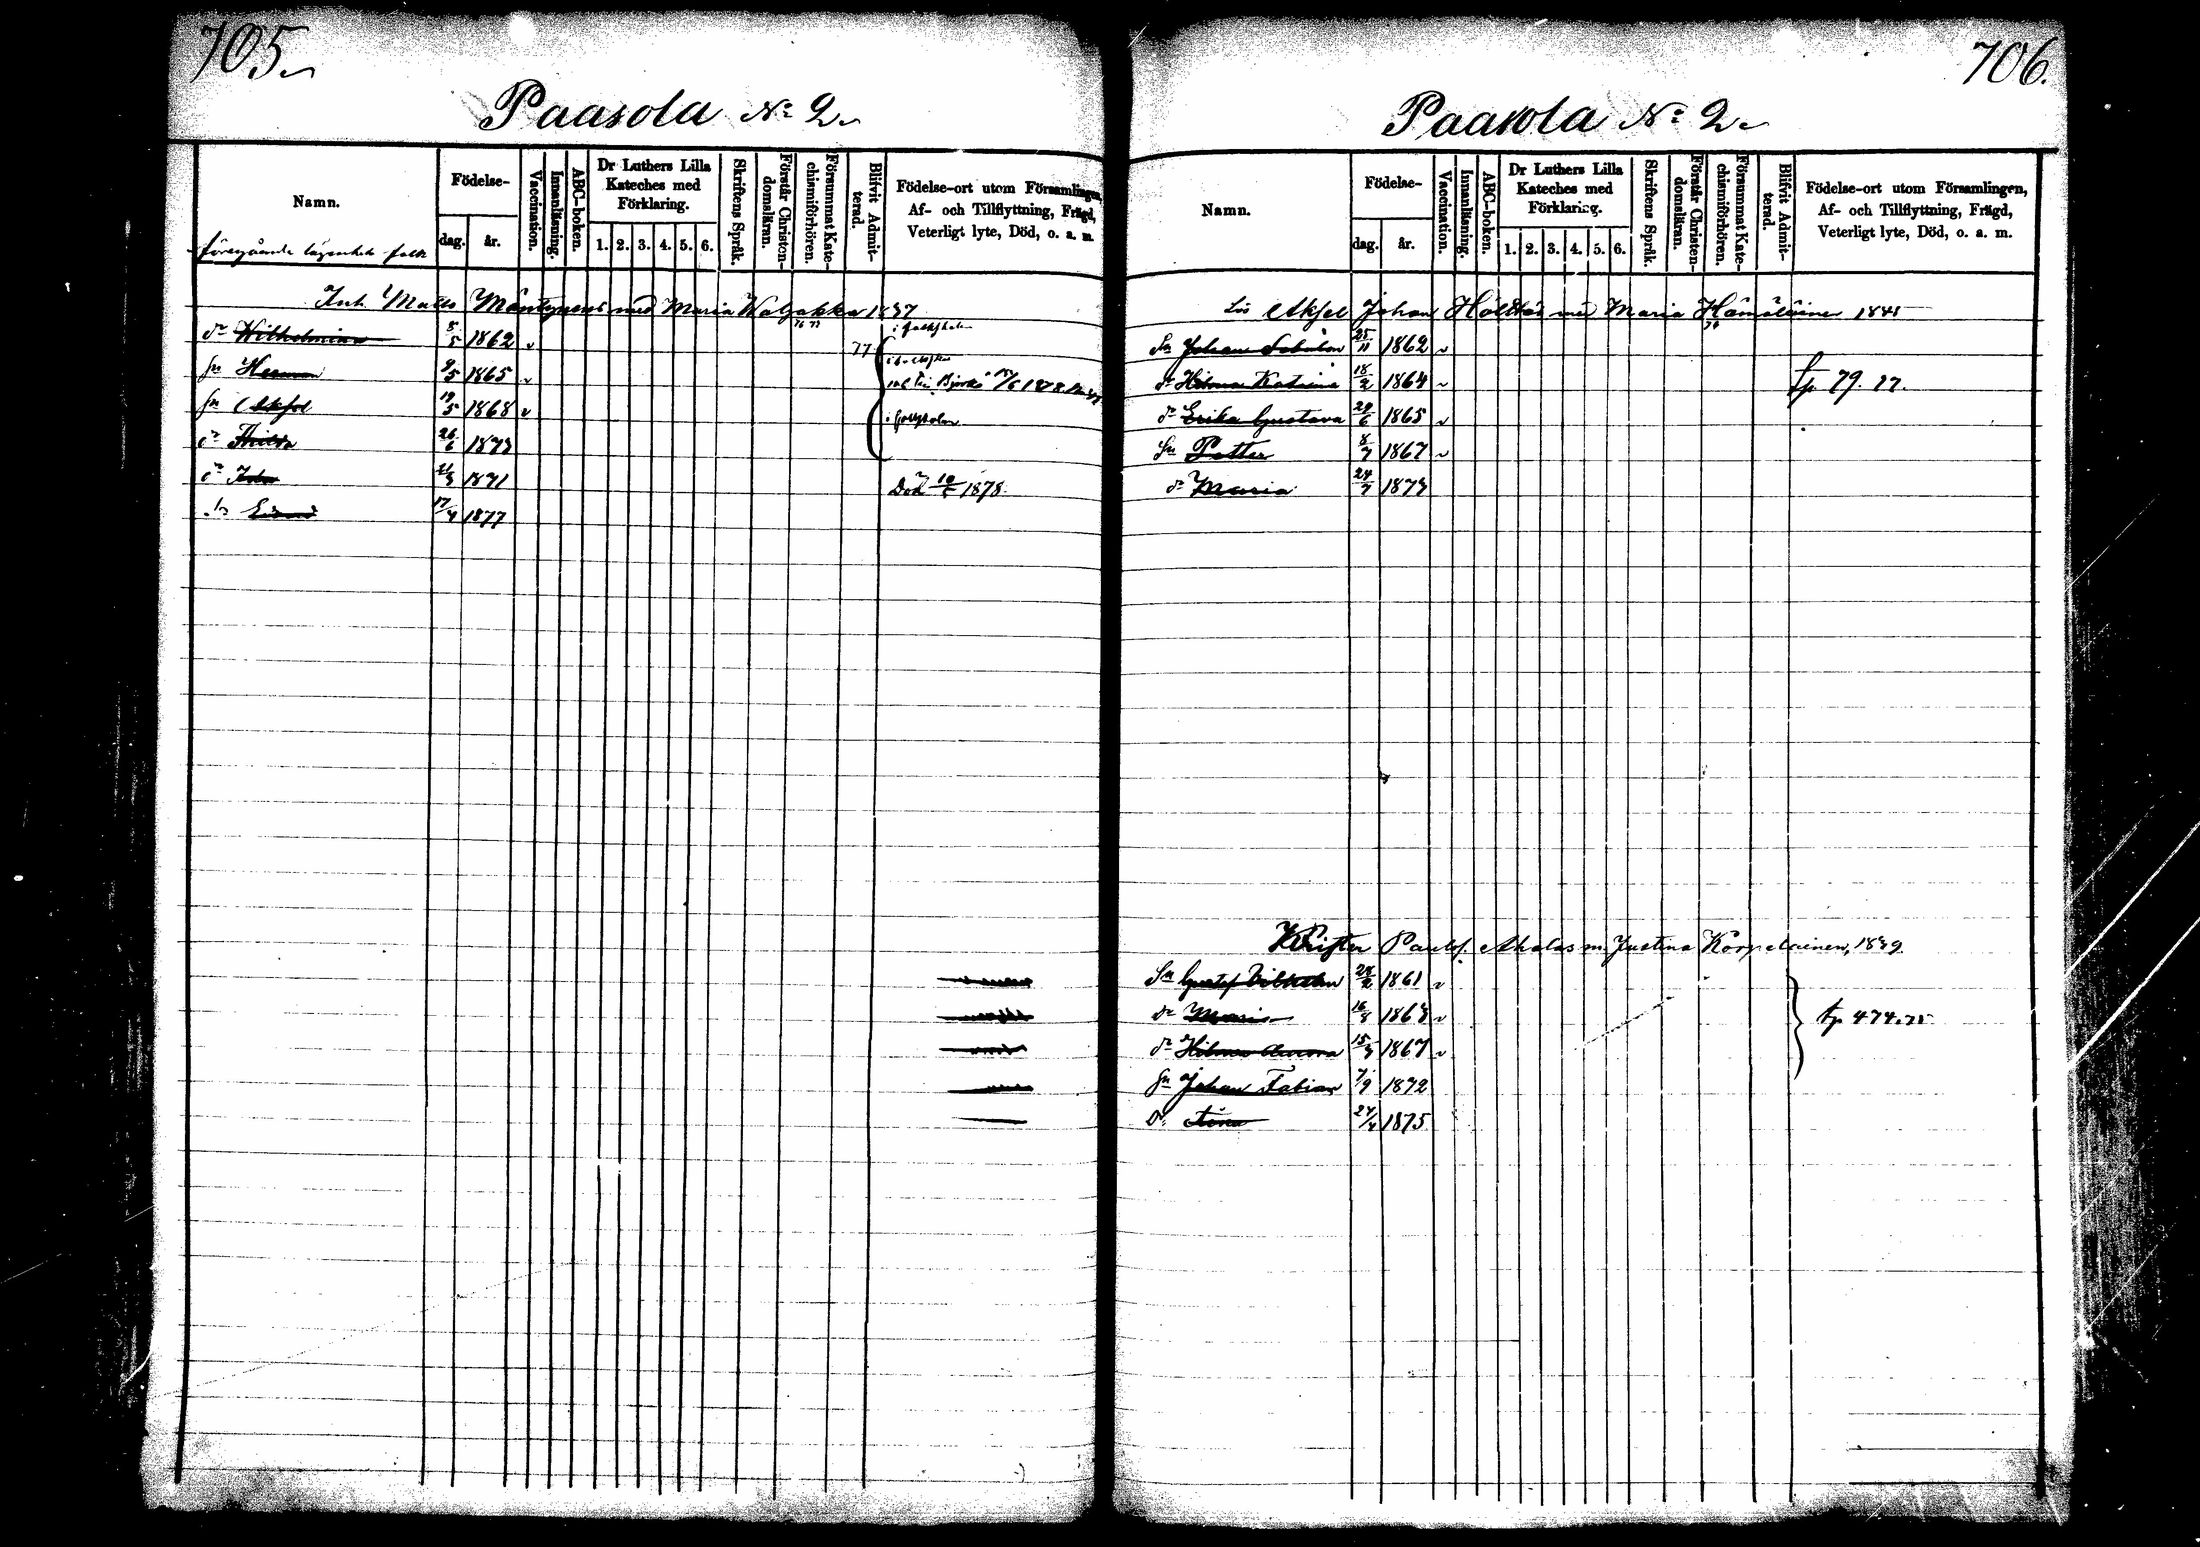 705.
Paasola № 2.
Namn.
Födelse-
dag.
år.
Vaccination.
Innanläsning.
ABC-boken.
Dr Luthers Lilla
Kateches med
Förklaring.
1. 2. 3. 4. 5. 6.
Skriftens Språk.
Förstår Christen-
domsläran.
Försummat Kate-
chismiförhören.
Blifvit Admit-
terad.
Födelse-ort utom Församlingen,
Af- och Tillflyttning, Frägd,
Veterligt lyte, Död, o. a. m.
föregående lägenhets folk
Inh. Matts Mäntynens med Maria Waljakka 1837
dr Wilhelmina 5/5 1862
sn Herman 9/5 1865
sn Aksel 19/5 1868
dr Hilda 26/6 1873
dr Ida 1871 Död 10/5 1878.
sn Edvard 17/4 1877
77
706.
Paasola № 2.
Namn.
Födelse-
dag.
år.
Vaccination.
Innanläsning.
ABC-boken.
Dr Luthers Lilla
Kateches med
Förklaring.
1. 2. 3. 4. 5. 6.
Skriftens Språk.
Förstår Christen-
domsläran.
Försummat Kate-
chismiförhören.
Blifvit Admit-
terad.
Födelse-ort utom Församlingen,
Af- och Tillflyttning, Frägd,
Veterligt lyte, Död, o. a. m.
Lös Aksel Johan med Maria Hämäläinen 1841
Sn Johan 25/11 1862
dr Hilma Katarina 18/2 1864 fp 79. 77.
dr Erika Gustava 29/6 1865
Sn Petter 8/7 1867
dr Maria 24/7 1873
Krister Paulss. Ahalas m. Justina Korpelainen, 1839
Sn Gustaf Vilhelm 28/2 1861
dr Maria 16/8 1863 fp 474.75
dr Hilma Aurora 15/3 1867
sn Johan Fabian 7/9 1872
Dr 24/4 1875